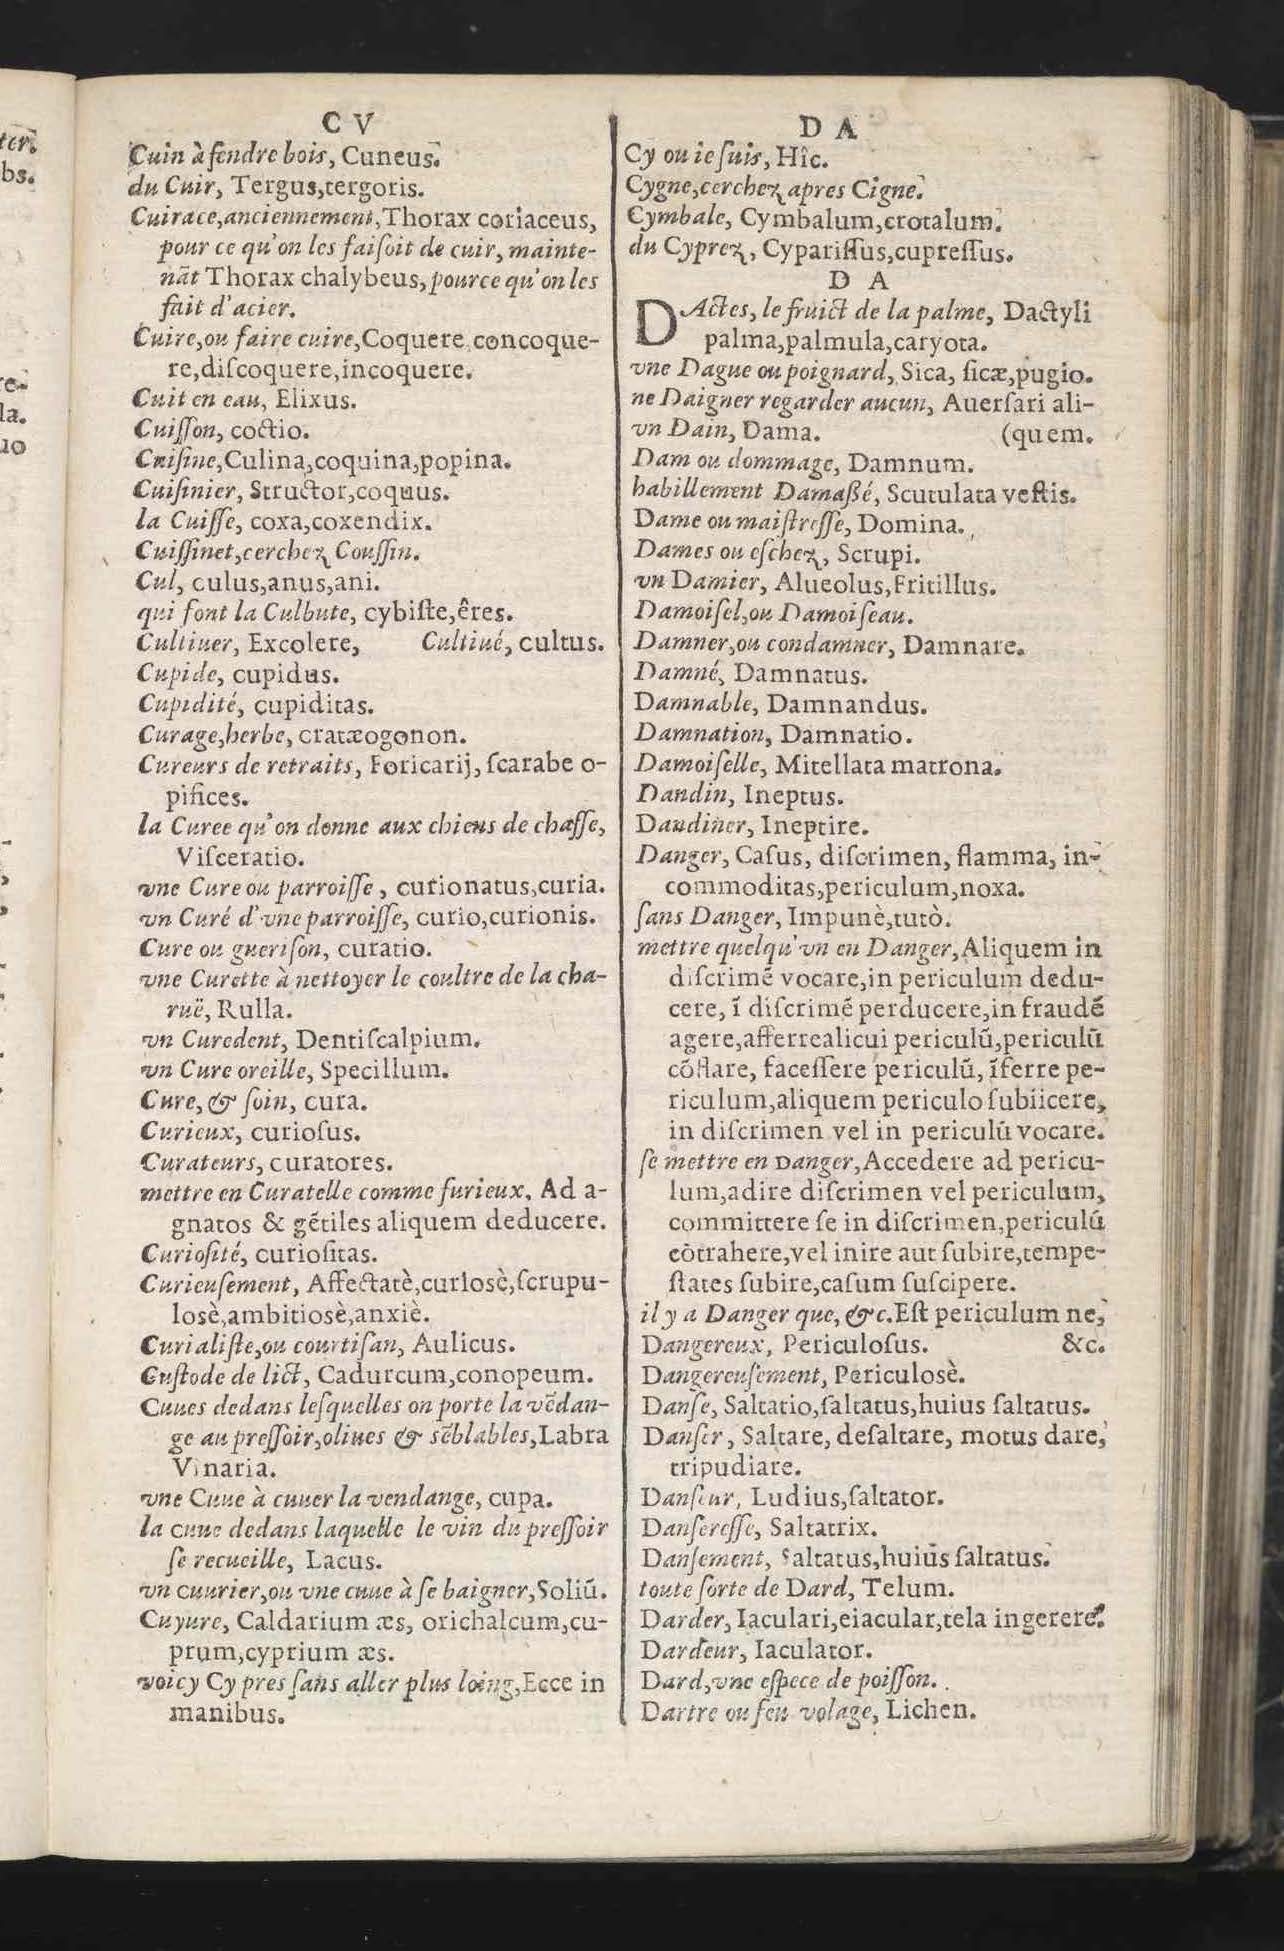 C V
Cuin à fendre bois, Cuneus.
du Cuir, Tergus,tergoris.
Cuirace,anciennement,Thorax coriaceus,
pour ce qu'on les faiſoit de cuir, mainte-
nãt Thorax chalybeus, pource qu'on les
fait d'acier.
Cuire,ou faire cuire,Coquere,concoque-
re,diſcoquere,incoquere.
Cuit en eau, Elixus.
Cuiſſon, coctio.
Cuiſine,Culina,coquina,popina.
Cuiſinier, Structor,coquus.
la Cuiſſe, coxa,coxendix.
Cuiſſinet,cerchez Couſſin.
Cul, culus,anus,ani.
qui font la Culbute, cybiſte,êres.
Cultiuer, Excolere, Cultiué, cultus.
Cupide, cupidus.
Cupidité, cupiditas.
Curage,herbe, cratæogonon.
Cureurs de retraits, Foricarij, ſcarabe o-
pifices.
la Curee qu'on donne aux chiens de chaſſe,
Viſceratio.
vne Cure ou parroiſſe, curionatus,curia.
vn Curé d'vne parroiſſe, curio,curionis.
Cure ou gueriſon, curatio.
vne Curette à nettoyer le coultre de la cha-
ruë, Rulla.
vn Curedent, Dentiſcalpium.
vn Cure oreille, Specillum.
Cure, & ſoin, cura.
Curieux, curioſus.
Curateurs, curatores.
mettre en Curatelle comme furieux, Ad a-
gnatos & gẽtiles aliquem deducere.
Curioſité, curioſitas.
Curieuſement, Affectatè,curioſè,ſcrupu-
losè,ambitiosè,anxiè.
Curialiſte,ou courtiſan, Aulicus.
Cuſtode de lict, Cadurcum,conopeum.
Cuues dedans leſquelles on porte la vẽdan-
ge au preſſoir,oliues & sẽblables,Labra
Vinaria.
vne Cuue à cuuer la vendange, cupa.
la cuue dedans laquelle le vin du preſſoir
ſe recueille, Lacus.
vn cuurier,ou vne cuue à ſe baigner,Soliũ.
Cuyure, Caldarium æs, orichalcum,cu-
prum,cyprium æs.
voicy Cy pres ſans aller plus loing,Ecce in
manibus.
D A
Cy ou ie ſuis, Hîc.
Cygne,cerchez apres Cigne.
Cymbale, Cymbalum,crotalum.
du Cyprez, Cypariſſus,cupreſſus.
D A
DActes, le fruict de la palme, Dactyli
palma,palmula,caryota.
vne Dague ou poignard, Sica, ſicæ,pugio.
ne Daigner regarder aucun, Auerſari ali-
vn Dain, Dama. (quem.
Dam ou dommage, Damnum.
habillement Damaßé, Scutulata veſtis.
Dame ou maiſtreſſe, Domina.
Dames ou eſchez, Scrupi.
vn Damier, Alueolus,Fritillus.
Damoiſel,ou Damoiſeau.
Damner,ou condamner, Damnare.
Damné, Damnatus.
Damnable, Damnandus.
Damnation, Damnatio.
Damoiſelle, Mitellata matrona.
Dandin, Ineptus.
Dandiner, Ineptire.
Danger, Caſus, diſcrimen, flamma, in-
commoditas,periculum,noxa.
ſans Danger, Impunè,tutò.
mettre quelqu'vn en Danger,Aliquem in
diſcrimẽ vocare,in periculum dedu-
cere, ĩ diſcrimẽ perducere,in fraudẽ
agere,afferrealicui periculũ,periculũ
cõflare, faceſſere periculũ, ĩferre pe-
riculum,aliquem periculo ſubiicere,
in diſcrimen vel in periculũ vocare.
ſe mettre en Danger,Accedere ad pericu-
lum,adire diſcrimen vel periculum,
committere ſe in diſcrimen,periculũ
cõtrahere,vel inire aut ſubire,tempe-
ſtates ſubire,caſum ſuſcipere.
il y a Danger que, &c.Eſt periculum ne,
Dangereux, Periculoſus. &c.
Dangereuſement, Periculosè.
Danſe, Saltatio,ſaltatus,huius ſaltatus.
Danſer, Saltare, deſaltare, motus dare,
tripudiare.
Danſeur, Ludius,ſaltator.
Danſereſſe, Saltatrix.
Danſement, Saltatus,huius ſaltatus.
toute ſorte de Dard, Telum.
Darder, Iaculari,eiacular,tela ingerere.
Dardeur, Iaculator.
Dard,vne eſpece de poiſſon.
Dartre ou feu volage, Lichen.